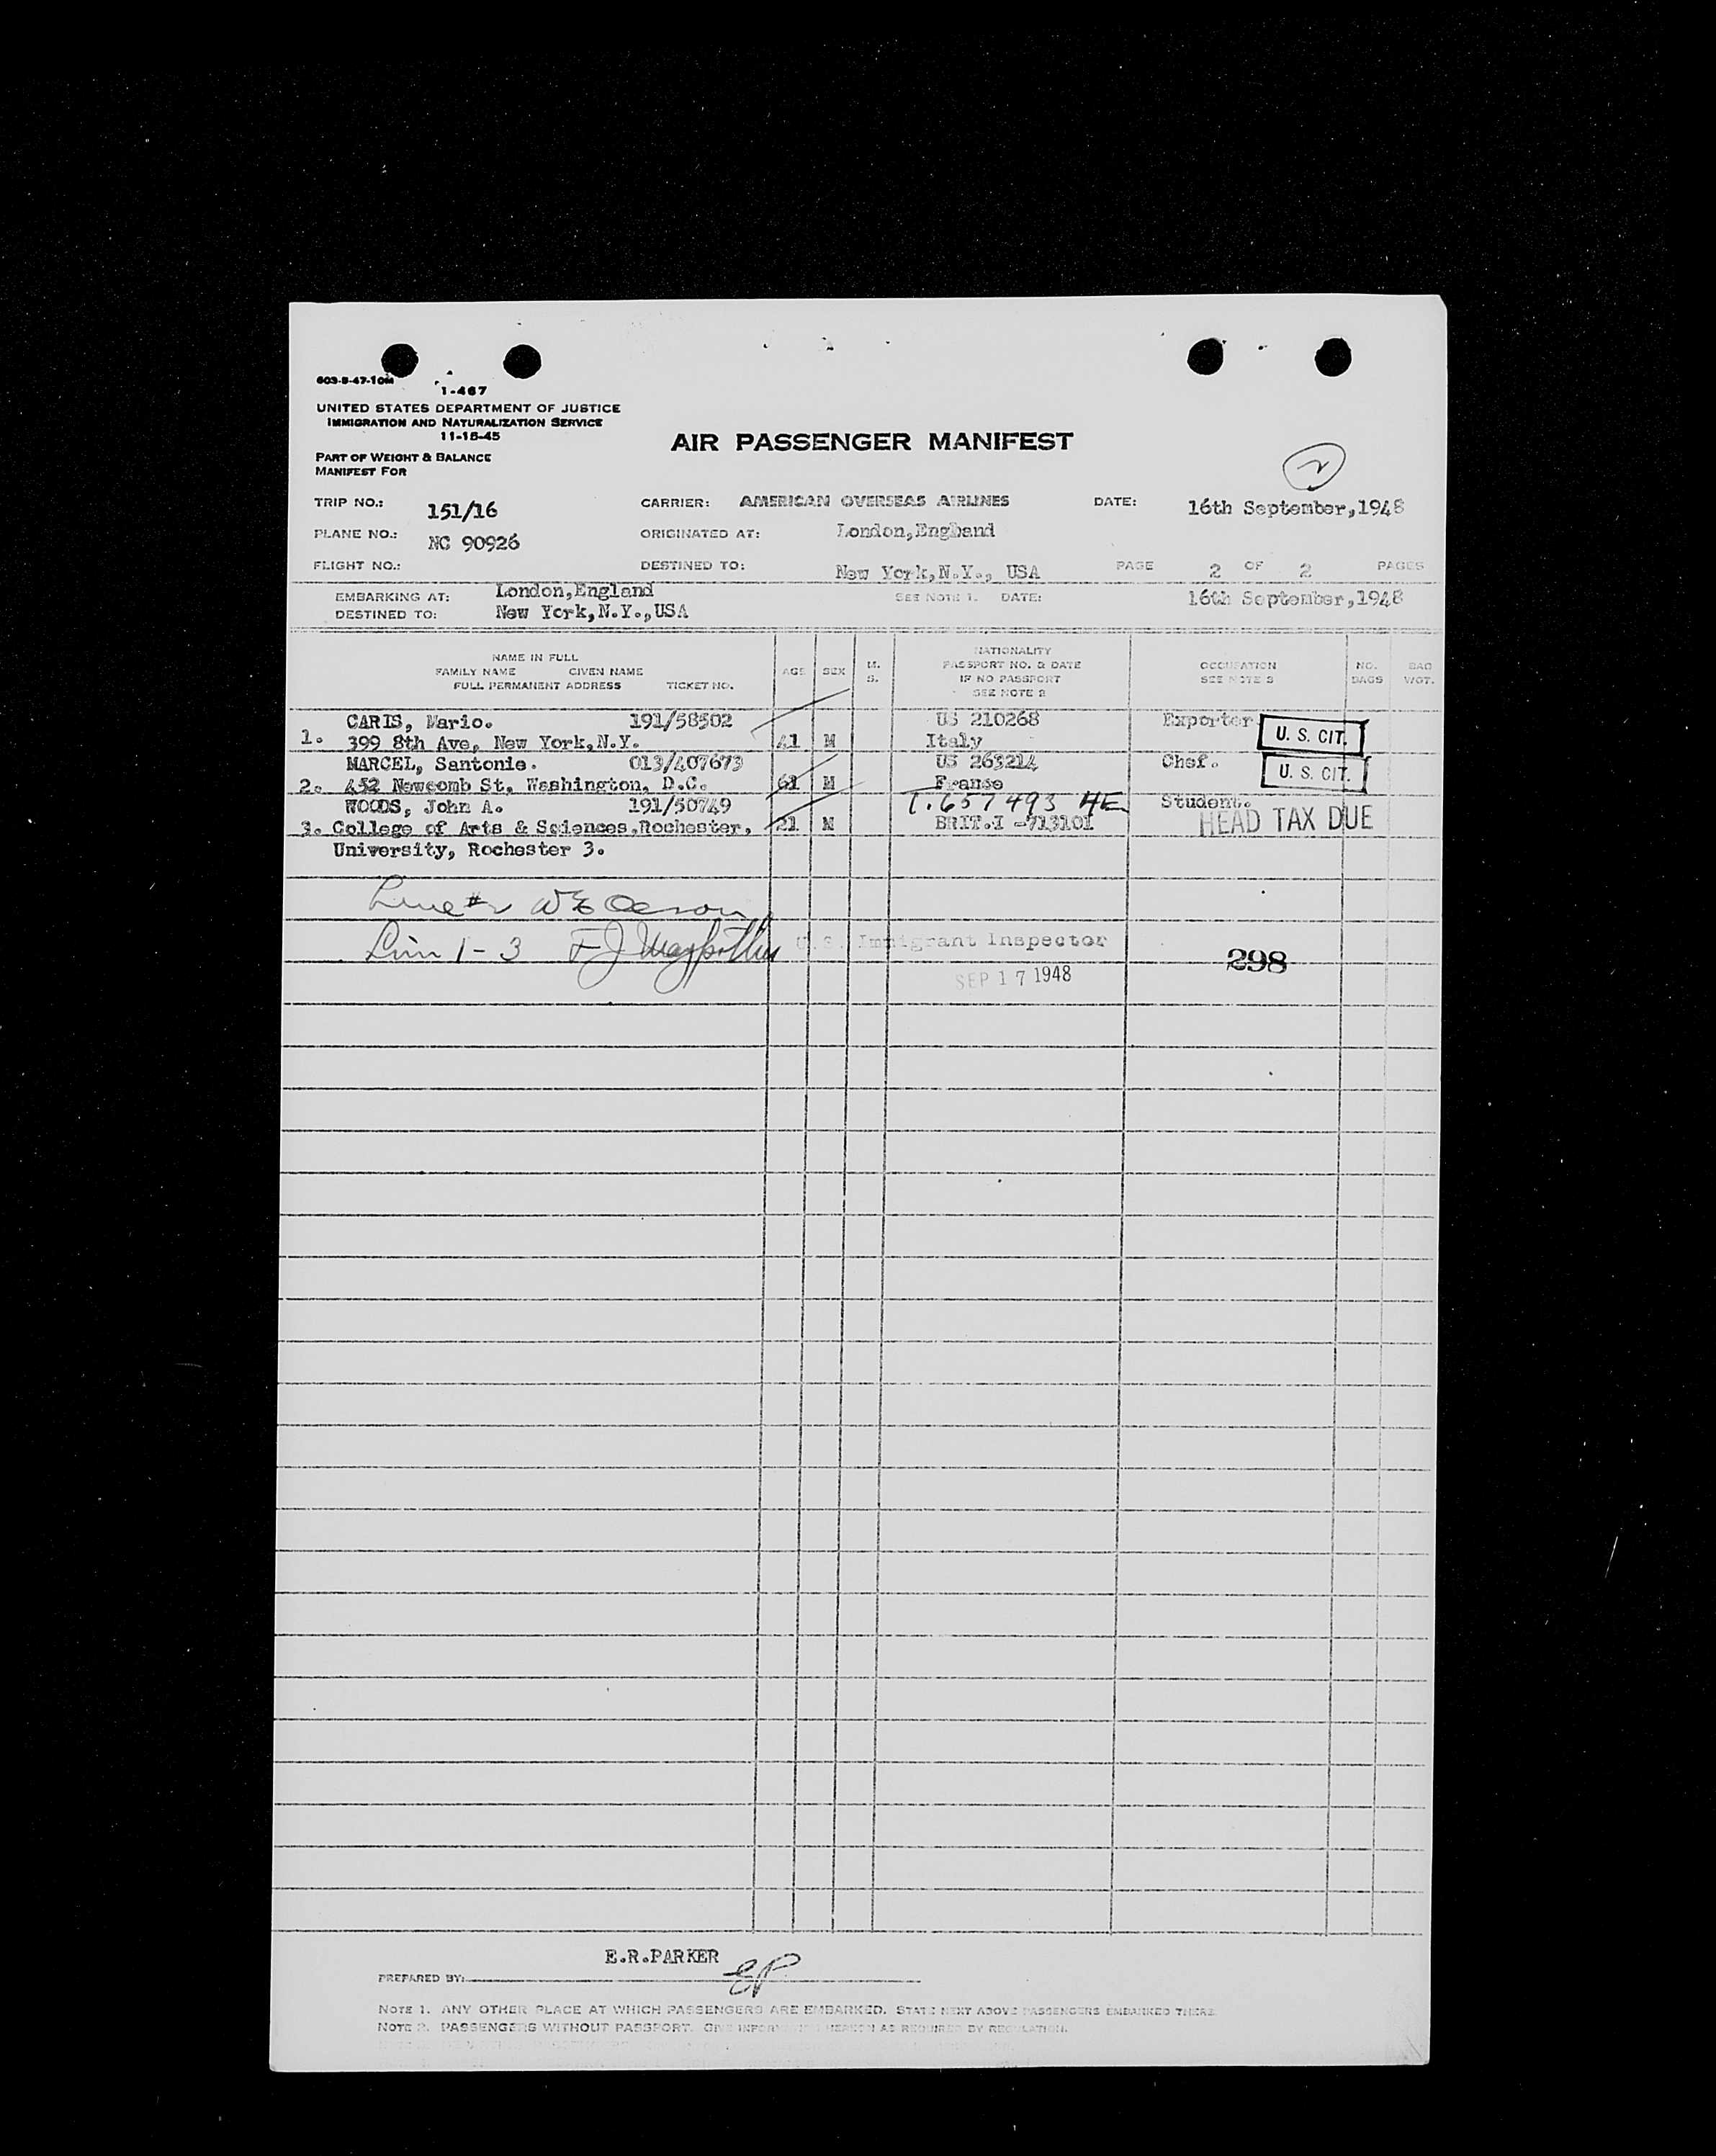 603-8-47-10M
1-467
UNITED STATES DEPARTMENT OF JUSTICE
IMMIGRATION AND NATURALIZATION SERVICE
11-15-45
AIR PASSENGER MANIFEST
PART OF WEIGHT & BALANCE
MANIFEST FOR
2
TRIP NO.: 151/16 CARRIER: AMERICAN OVERSEAS AIRLINES DATE: 16th September,1948
PLANE NO.: NC 90926 ORIGINATED AT: London,England
FLIGHT NO.: DESTINED TO: New York,N.Y., USA PAGE 2 OF 2 PAGES
EMBARKING AT: London,England SEE NOTE 1. DATE: 16th September,1948
DESTINED TO: New York,N.Y.,USA
NAME IN FULL
FAMILY NAME GIVEN NAME
FULL PERMANENT ADDRESS TICKET NO. AGE SEX M. S. NATIONALITY
PASSPORT NO. & DATE
IF NO PASSPORT
SEE NOTE 2 OCCUPATION
SEE NOTE 3 NO.
BAGS BAG
WGT.
CARIS, Mario. 191/58502 US 210268 Exporter. U. S. CIT.
1. 399 8th Ave, New York,N.Y. 41 M Italy
MARCEL, Santonie. 013/407673 US 263214 Chef. U. S. CIT.
2. 452 Newcomb St, Washington, D.C. 61 M France
WOODS, John A. 191/50749 1.657493 HE Student.
3. College of Arts & Sciences,Rochester, 21 M BRIT.I -713101 HEAD TAX DUE
University, Rochester 3.
Line #2
Line 1-3 F J U.S. Immigrant Inspector 298
SEP 17 1948
E.R.PARKER EP
PREPARED BY:
NOTE 1. ANY OTHER PLACE AT WHICH PASSENGERS ARE EMBARKED. STATE NEXT ABOVE PASSENGERS EMBARKED THERE.
NOTE 2. PASSENGERS WITHOUT PASSPORT. GIVE INFORMATION HEREON AS REQUIRED BY REGULATION.